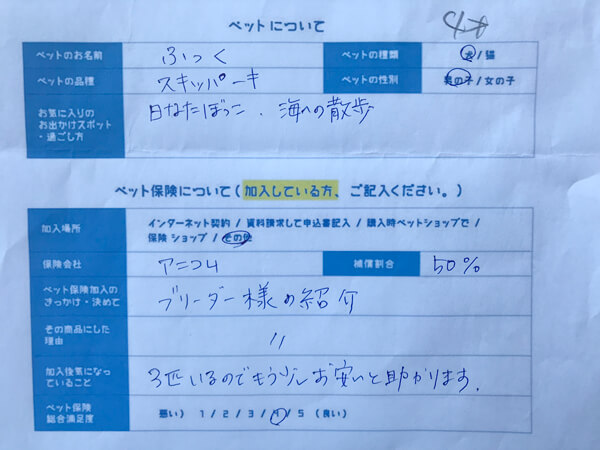 ペットについて
4才
ペットのお名前 ふっく ペットの種類 犬 / 猫
ペットの品種 スキッパーキ ペットの性別 男の子 / 女の子
お気に入りの
お出かけスポット
・過ごし方
日なたぼっこ、海への散歩
ペット保険について(加入している方、ご記入ください。)
加入場所
インターネット契約 / 資料請求して申込書記入 / 購入時ペットショップで /
保険 ショップ / その他
保険会社 アニコム 補償割合 50%
ペット保険加入の
きっかけ・決めて
ブリーダー様の紹介
その商品にした
理由
〃
加入後気になっ
ていること
3匹いるのでもう少しお安いと助かります。
ペット保険
総合満足度
悪い) 1 / 2 / 3 / 4 / 5 (良い)